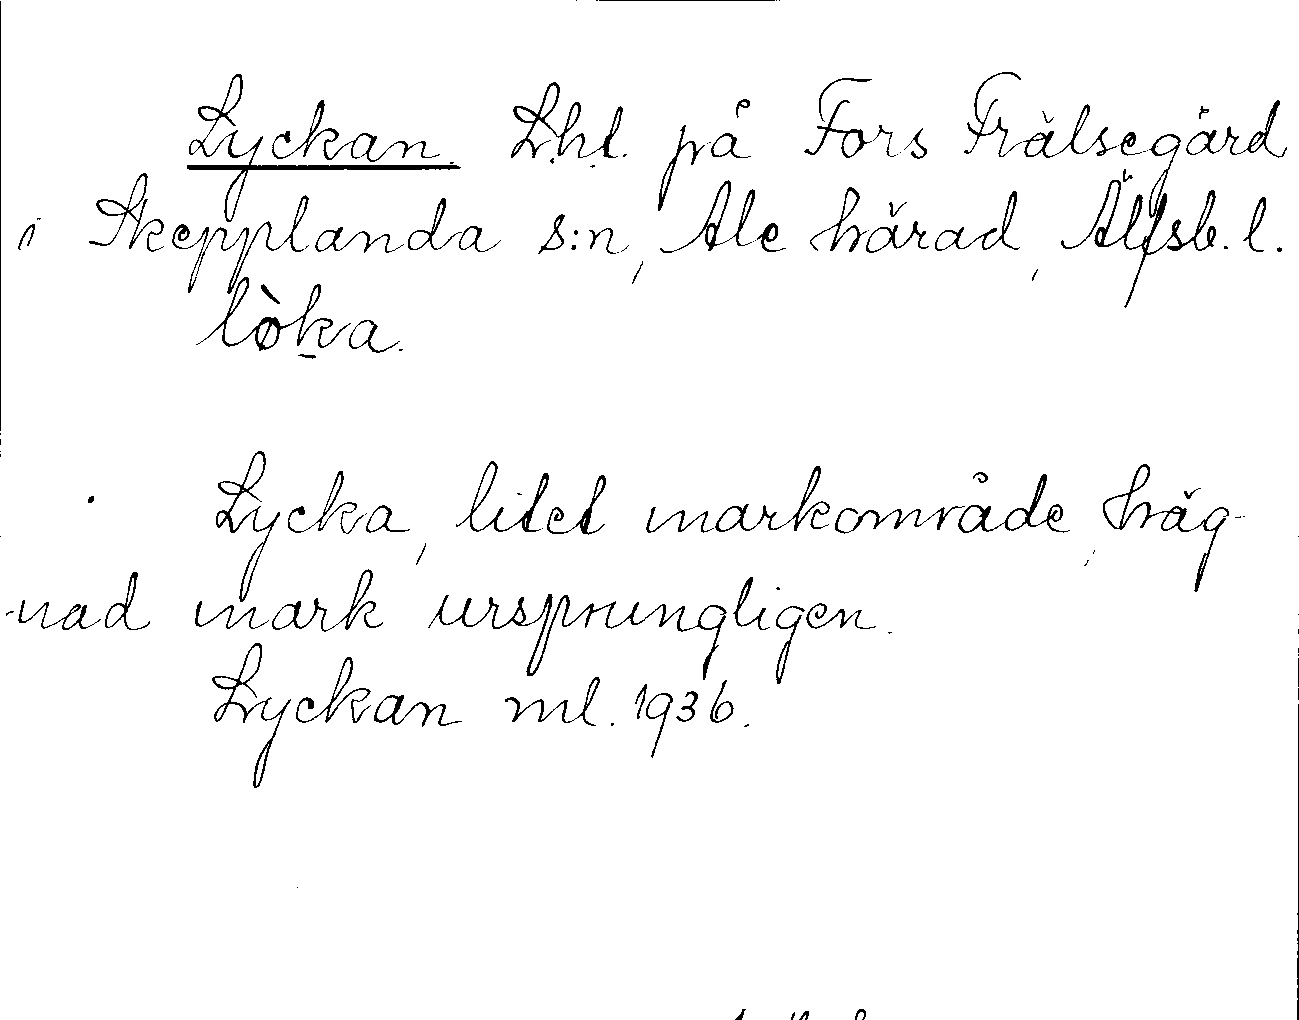 Lyckan. Lht. på Fors Frälsegård
i Skepplanda s:n, Ale härad, Älfsb. l.
lòka.
Lycka, litet markområde, häg-
nad mark ursprungligen.
Lyckan ml. 1936.